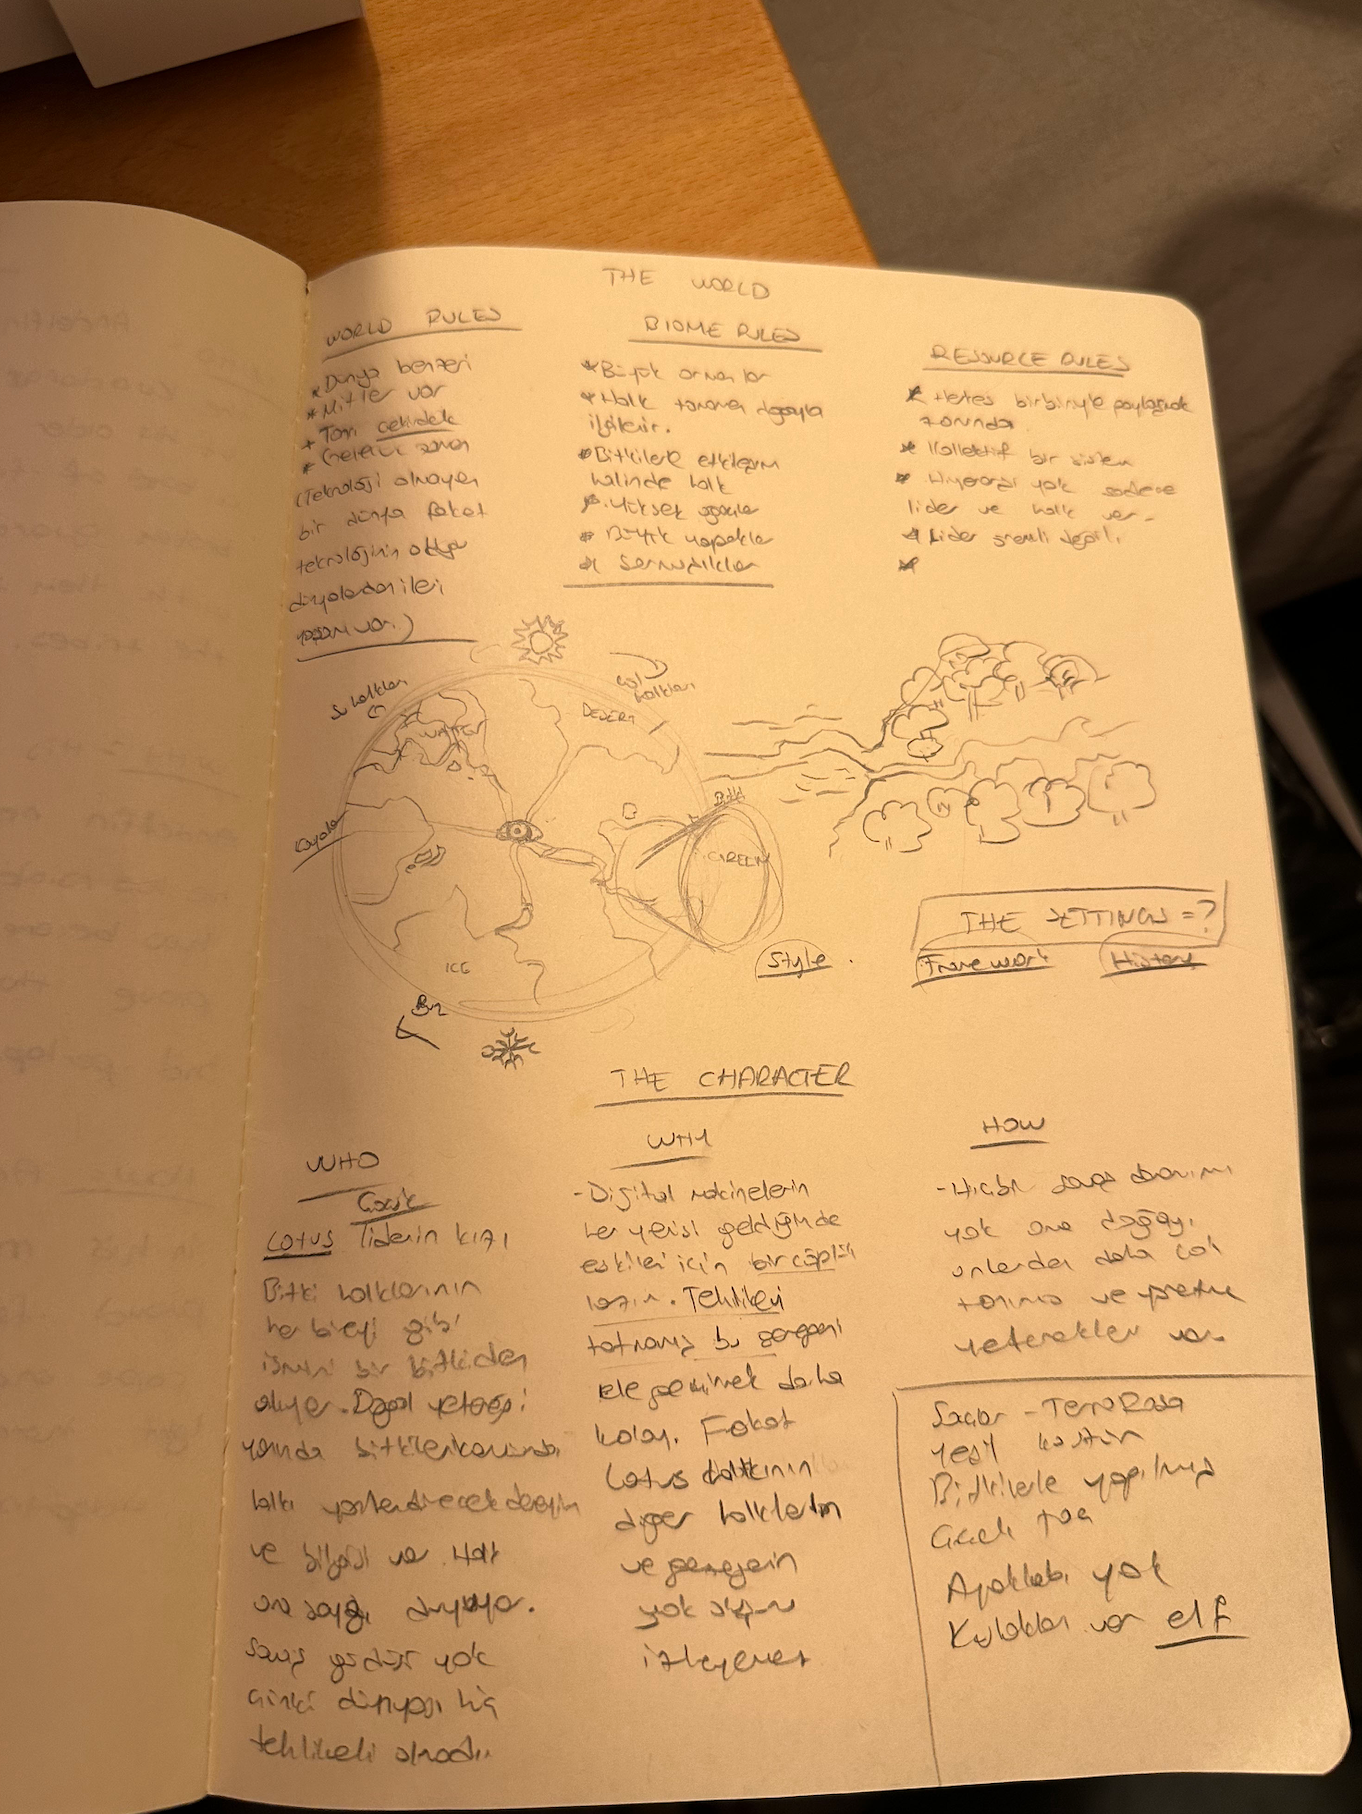 THE WORLD
WORLD RULES
* Dünya benzeri
* Mitler var
* Tanrı çekirdek
(Teknoloji olmayan
bir dünya fakat
teknolojinin olduğu
dünyalardan ileri
yaşam var.)
BIOME RULES
* Büyük ormanlar
* Halk tamamen doğayla
ilgilenir.
* Bitkilerle etkileşim
halinde halk
* Yüksek ağaçlar
* Büyük yapraklar
* Sarmaşıklar
RESOURCE RULES
* Herkes birbiriyle paylaşmak
zorunda.
* Kollektif bir sistem
* Hiyerarşi yok sadece
lider ve halk var.
* Lider önemli değil.
*
Su halkları
Çöl
halkları
WATER
DESERT
Kayalar
Bitki
GREEN
ICE
Buz
Style.
THE SETTINGS = ?
Framework
History
THE CHARACTER
WHO
Çocuk
LOTUS liderin kızı
Bitki halklarının
her bireyi gibi
ismini bir bitkiden
alıyor. Doğal yeteneği
yanında bitkiler konusunda
halkı yönlendirecek deneyim
ve bilgisi var. Halk
ona saygı duyuyor.
Savaş güdüsü yok
çünkü dünyası hiç
tehlikeli olmadı.
WHY
- Digital makinelerin
her yerisi geldiğinde
eskileri için bir çöplük
lazım. Tehlikeyi
tatmamış bu gezegeni
ele geçirmek daha
kolay. Fakat
Lotus halkının
diğer halkların
ve gezegenin
yok oluşunu
izleyemez
HOW
- Hiçbir savaş donanımı
yok ama doğayı
onlardan daha çok
tanıma ve yönetme
yetenekleri var.
Saçlar - TerraRosa
Yeşil kostüm
Bitkilerle yapılmış
Çiçek taç
Ayakkabı yok
Kulakları var elf